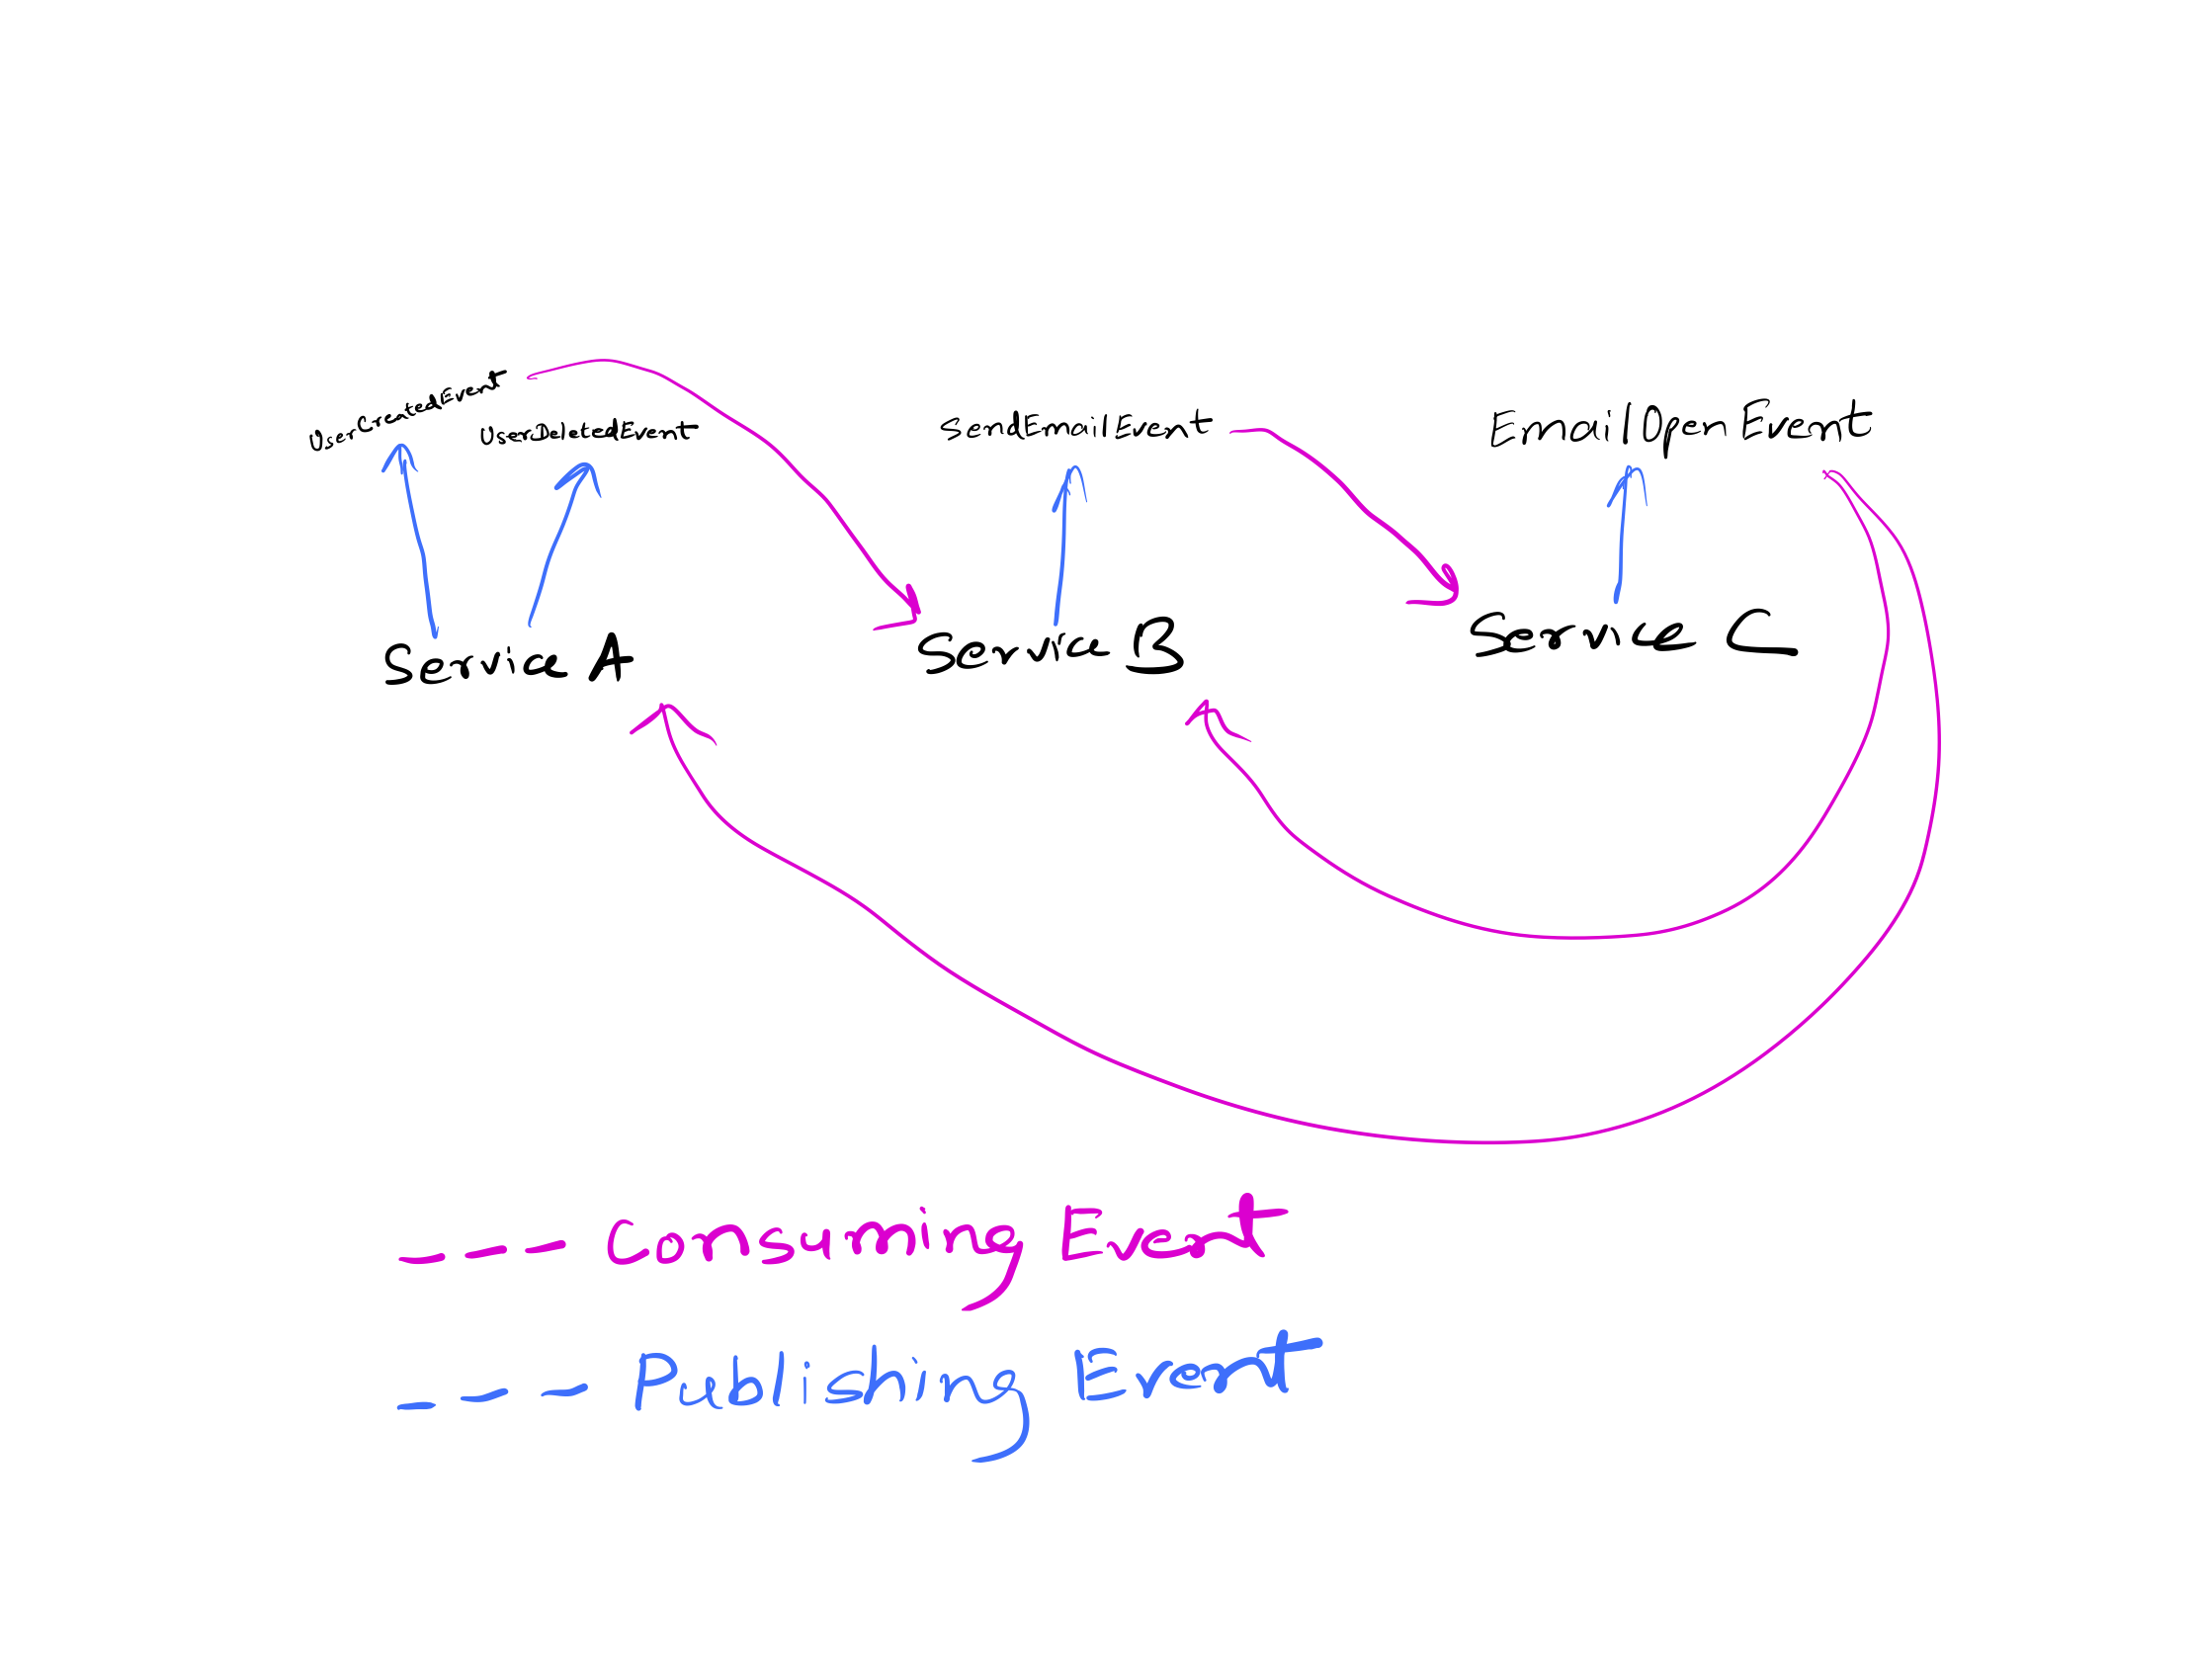 UserCreatedEvent
UserDeletedEvent
SendEmailEvent
EmailOpenEvent
Service A
Service B
Service C
--- Consuming Event
--- Publishing Event